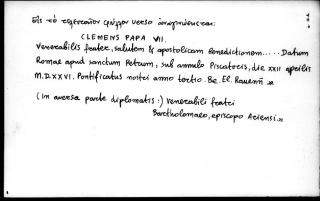 Εἰς τὸ τεμάχιον verso ἀναγινώσκεται:
CLEMENS PAPA VII.
Venerabilis frater, salutem & apostolicam benedictionem..... Datum
Romae apud sanctum Petrum, sub annulo Piscatoris, die XXII aprilis
M.D.XXVI. Pontificatus nostri anno tertio. Be. El. Ravenn
(In aversa parte diplomatis:) Venerabili fratri
Bartholomaeo, episcopo Ariensi.